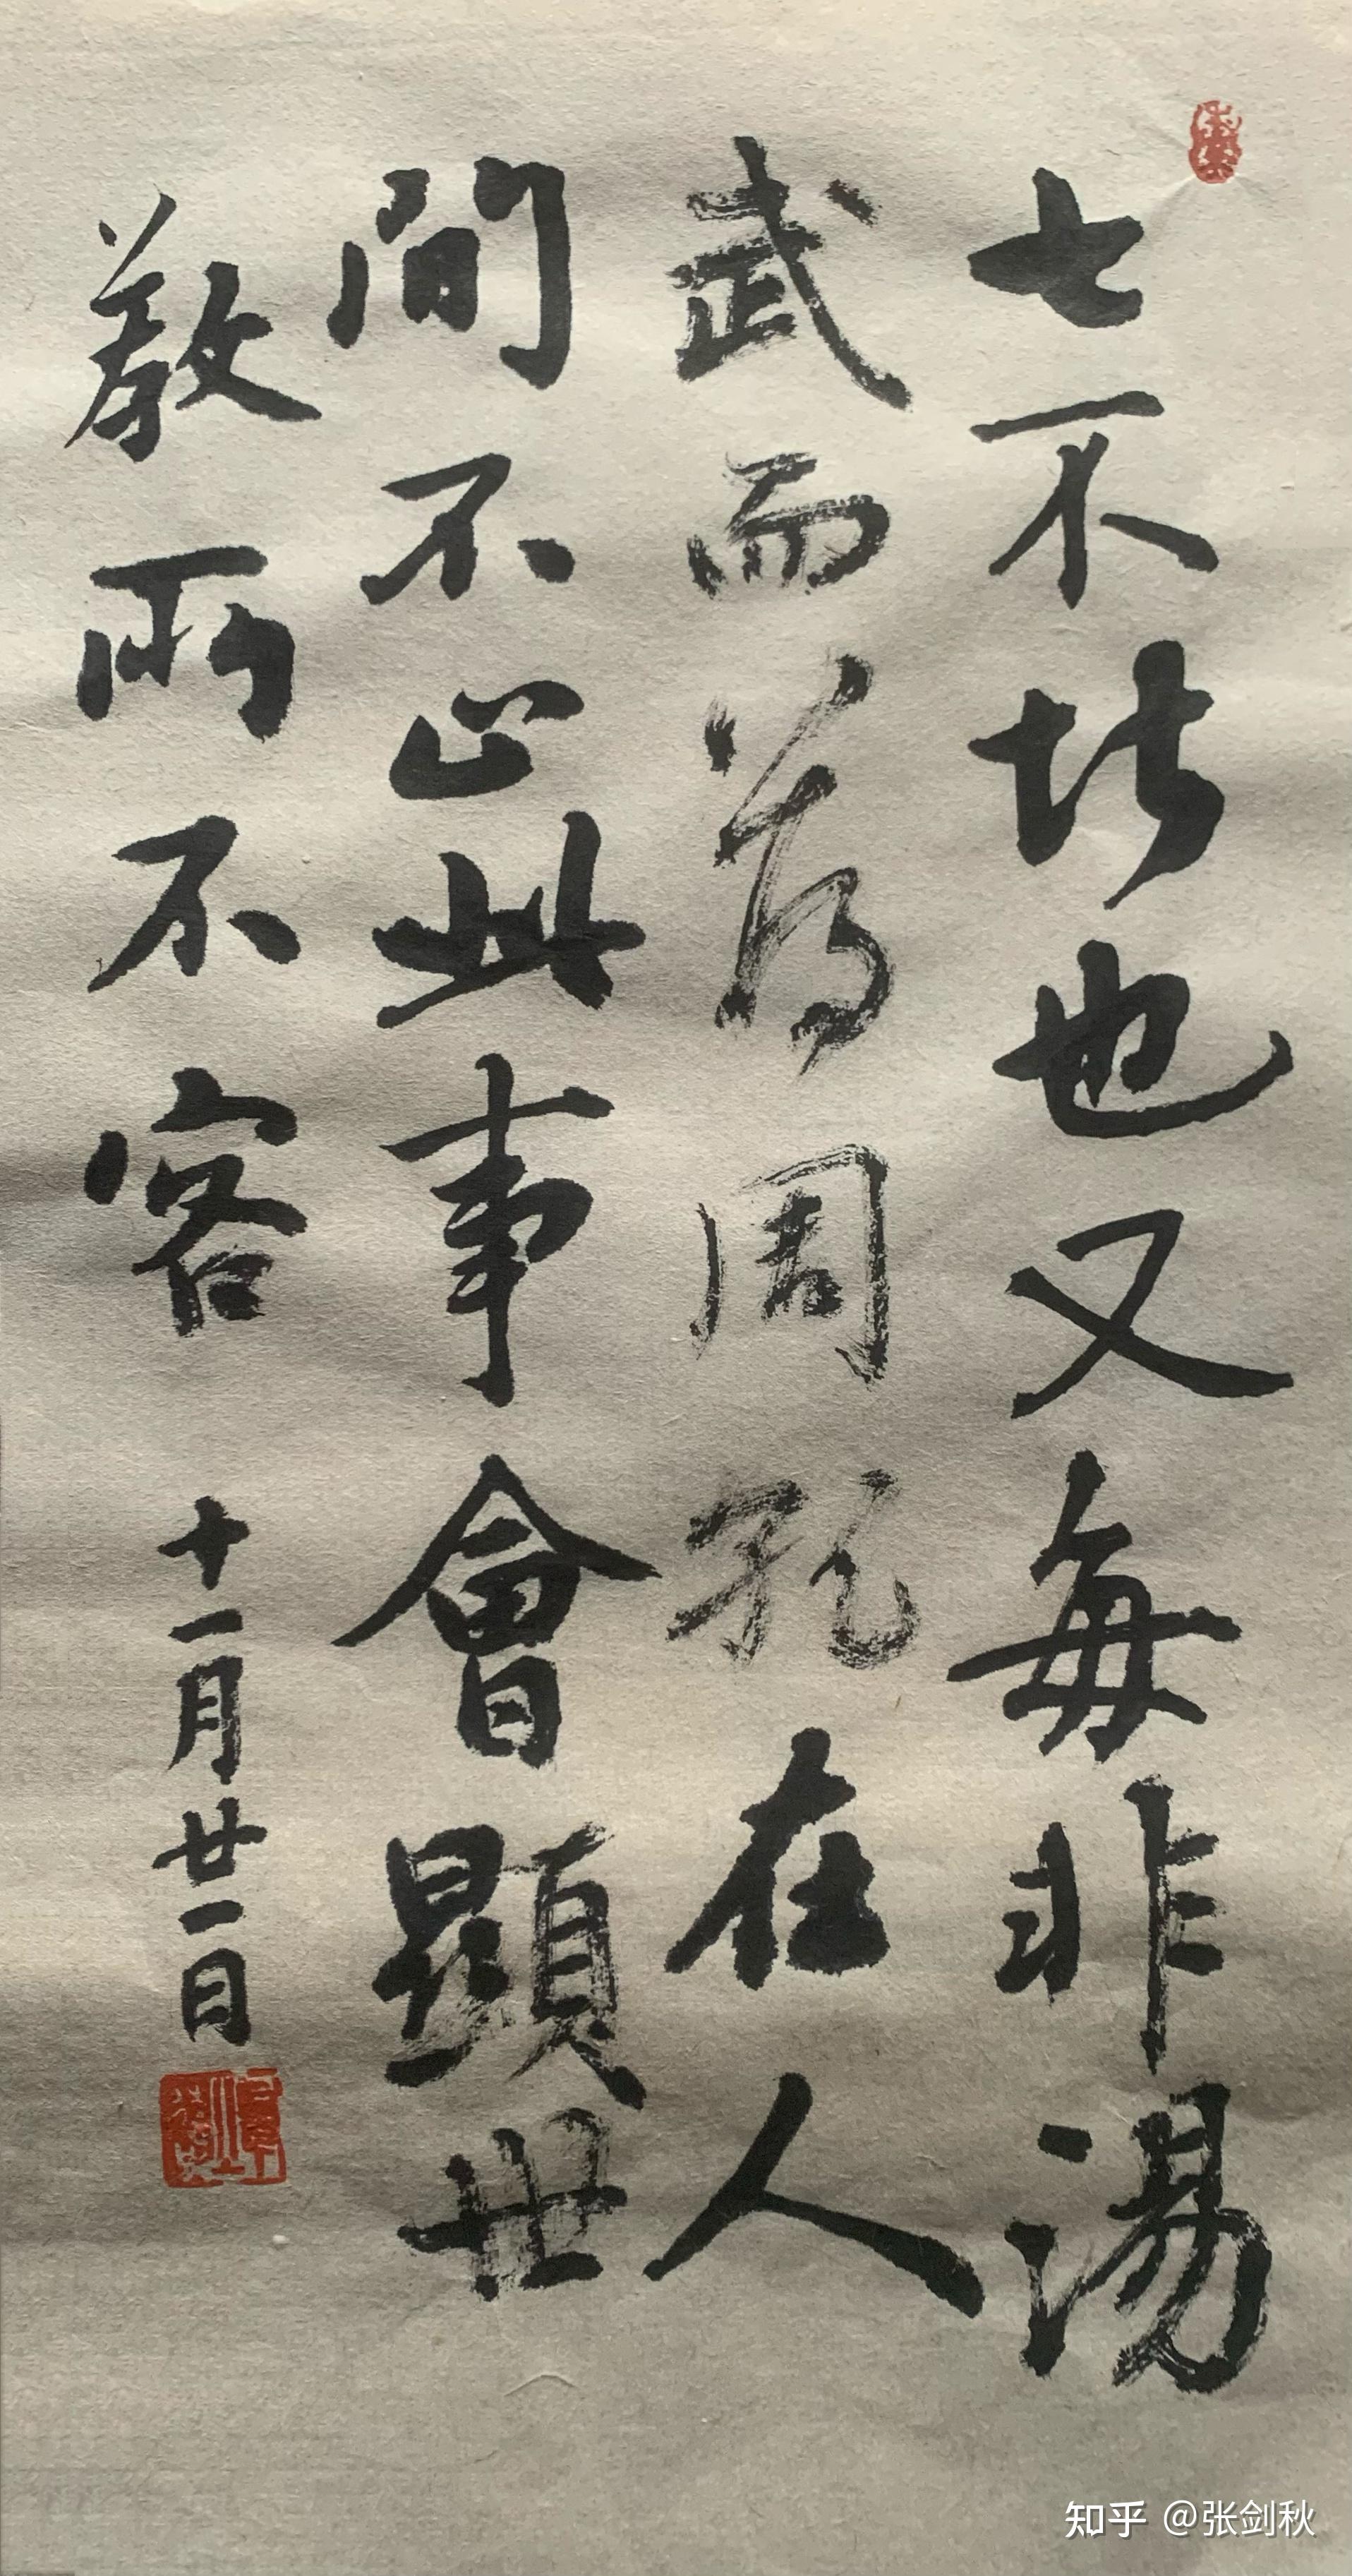 七不堪也又每非湯
武而薄周孔在人
間不止此事會顯世
教所不容 十一月廿一日
知乎 @张剑秋